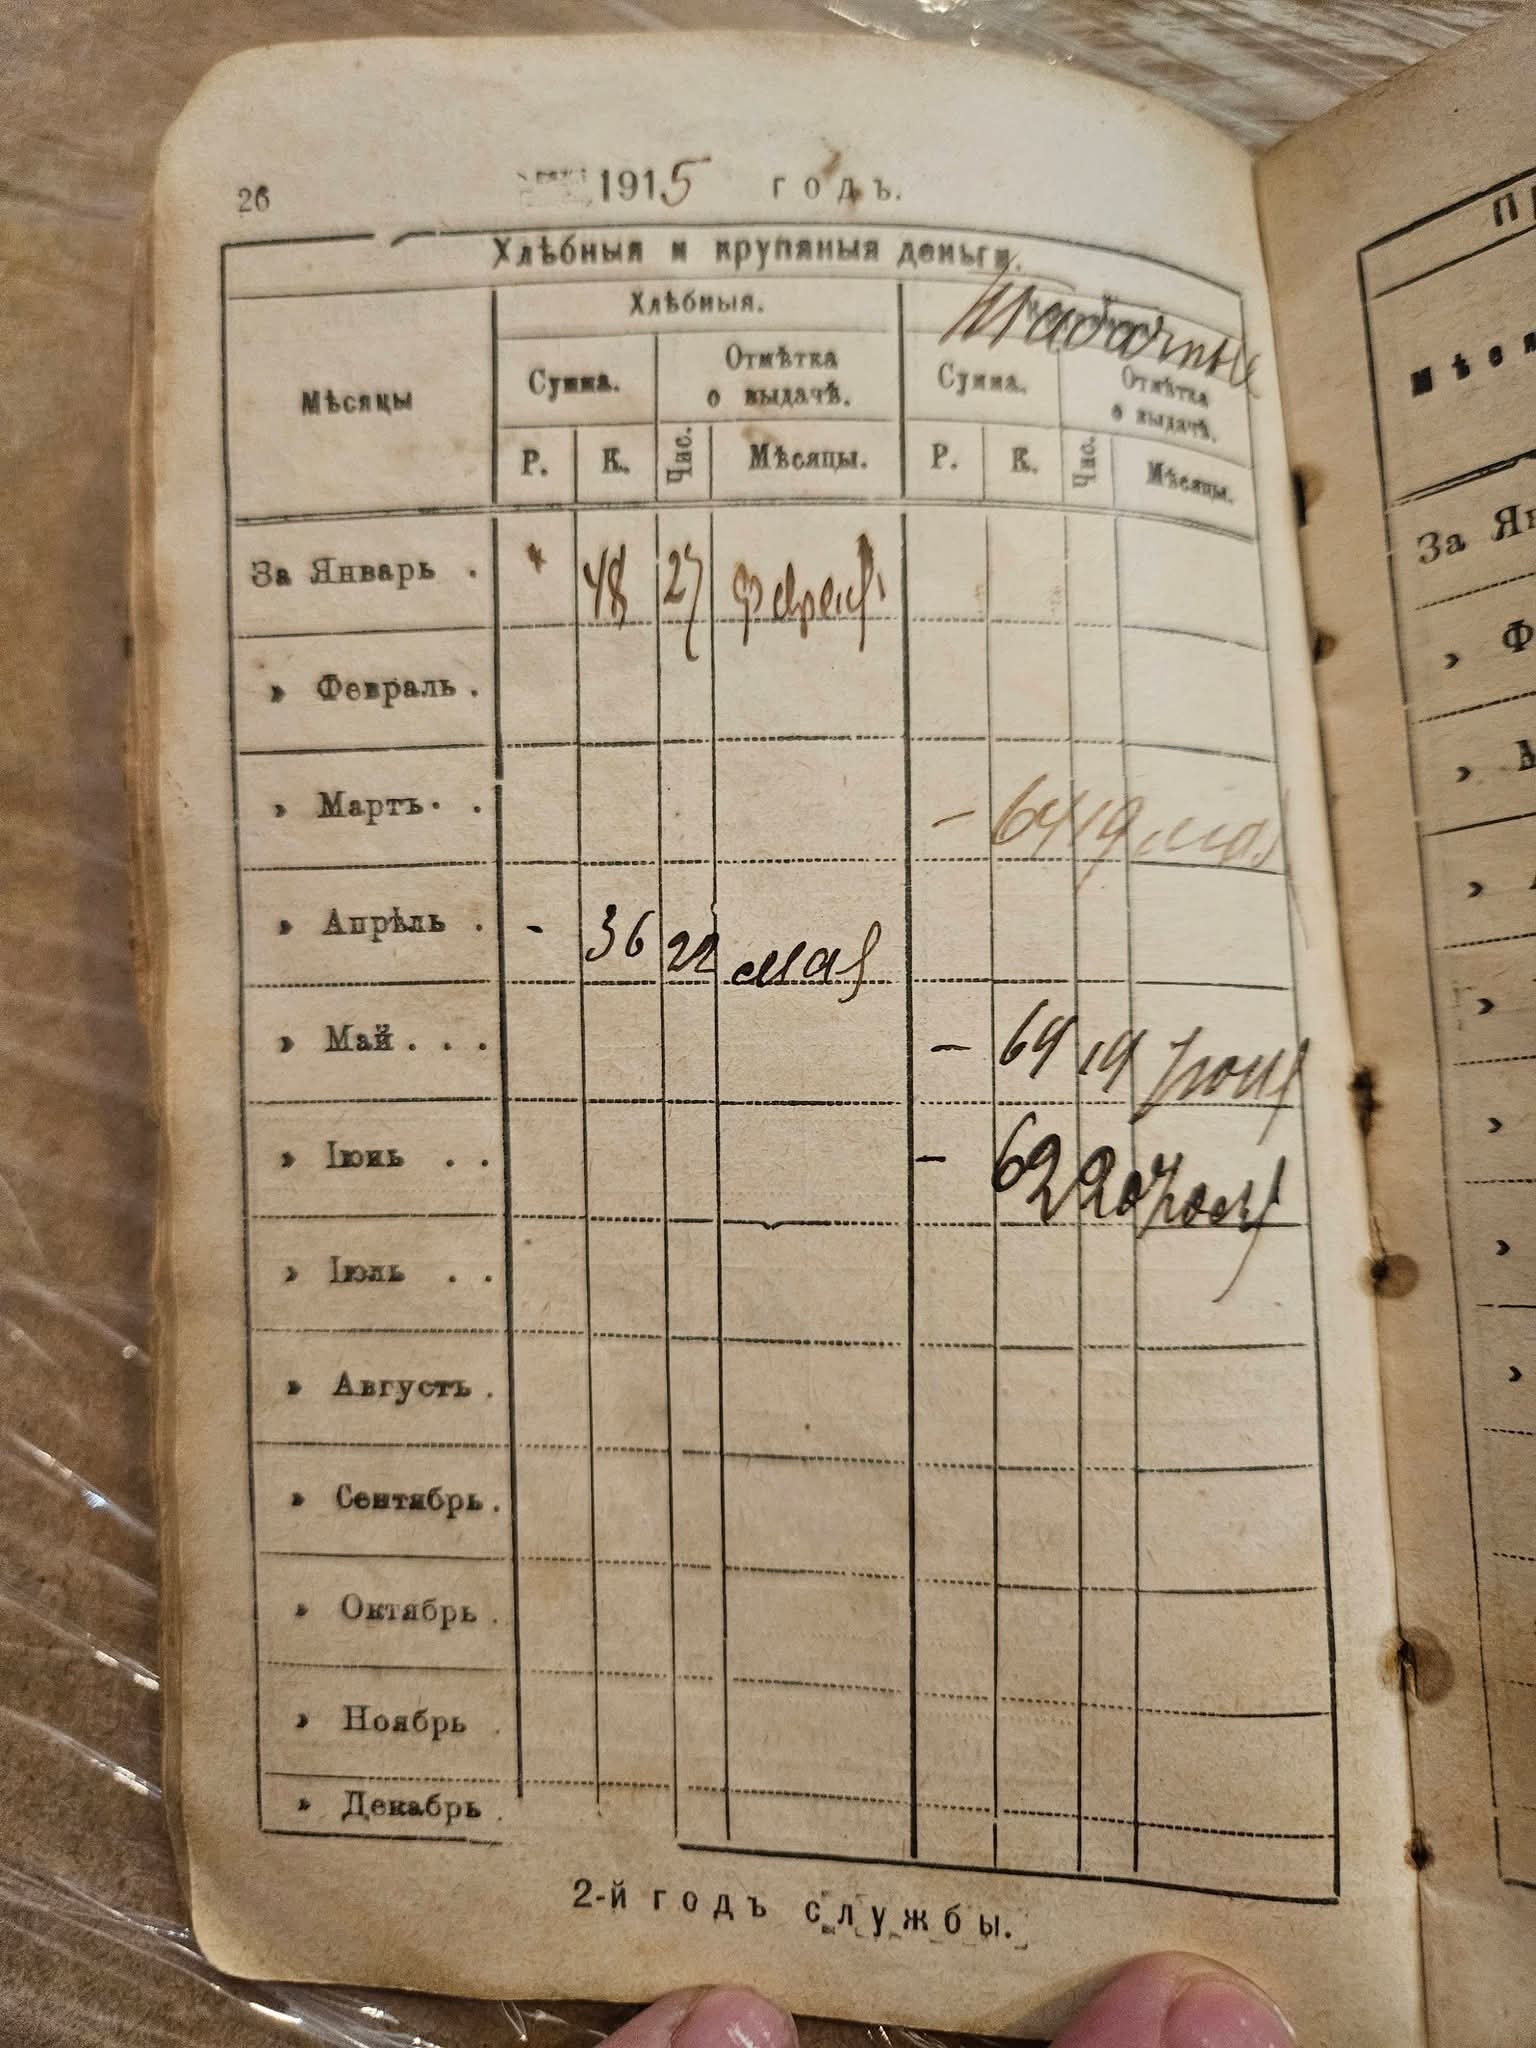 26
1915 годъ.
Хлѣбныя и крупяныя деньги.
Мѣсяцы
Хлѣбныя.
Табачные
Сумма.
Отмѣтка о выдачѣ.
Сумма.
Отмѣтка о выдачѣ.
Р. К. Чис. Мѣсяцы. Р. К. Чис. Мѣсяцы.
За Январь . 48 27 феврал
» Февраль .
» Мартъ . . - 64 19 мая
» Апрѣль . - 36 22 мая
» Май . . . - 64 19 Іюня
» Іюнь . . - 62 20 Іюля
» Іюль . .
» Августъ .
» Сентябрь .
» Октябрь .
» Ноябрь .
» Декабрь .
2-й годъ службы.
За Ян
» Ф